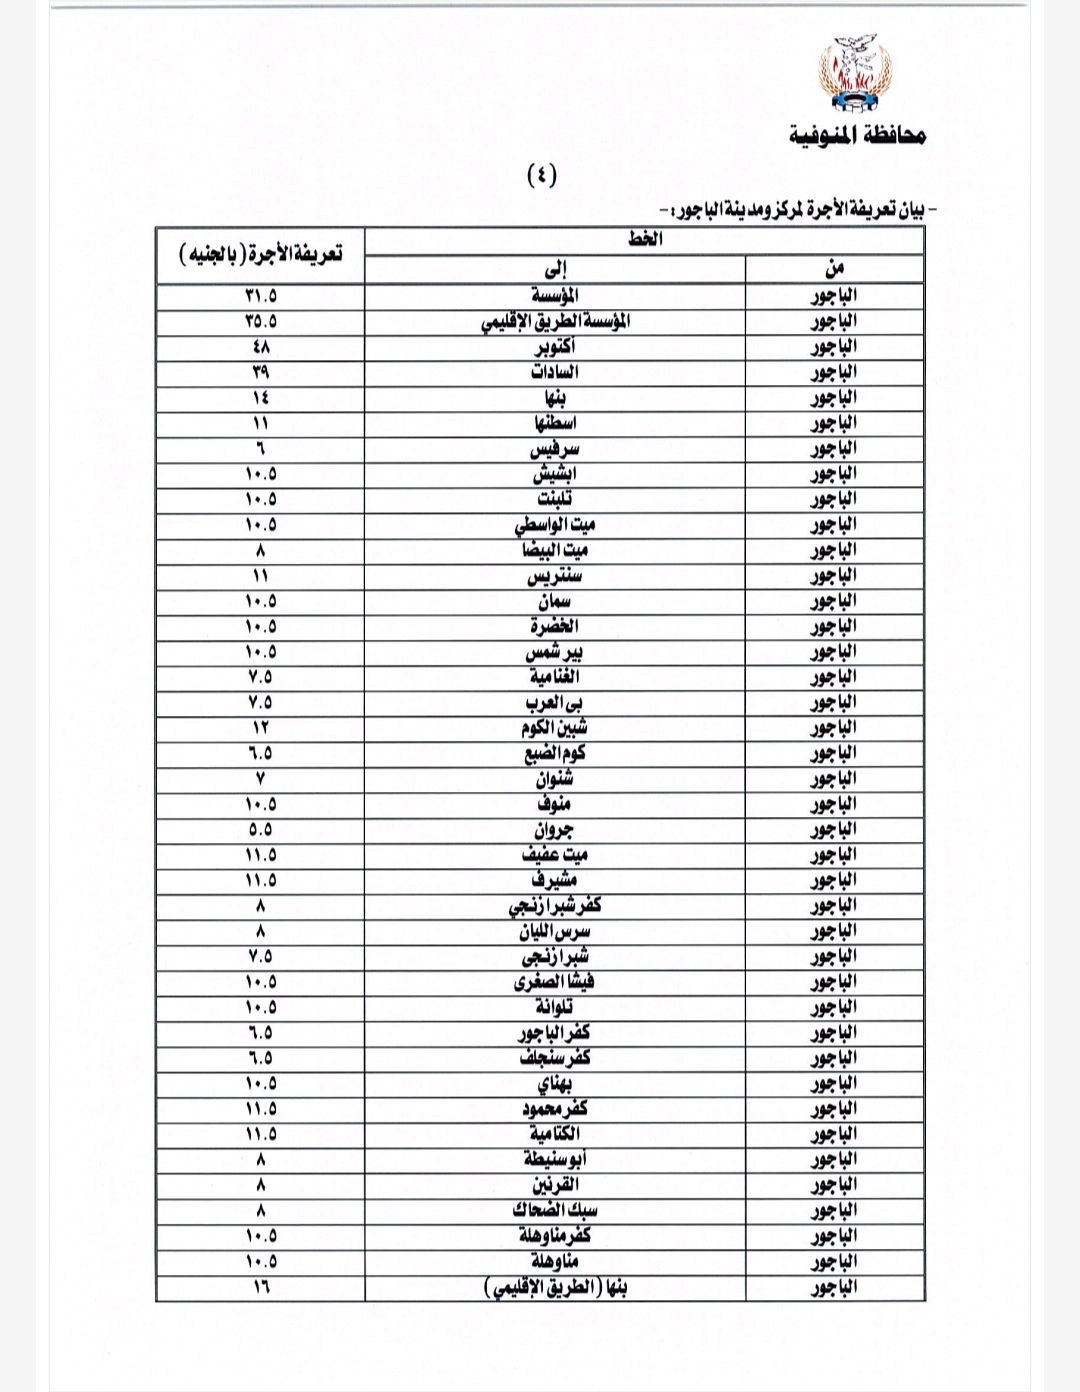 محافظة المنوفية
(٤)
- بيان تعريفة الأجرة لمركز ومدينة الباجور:-
الخط تعريفة الأجرة (بالجنيه)
من إلى
الباجور المؤسسة ٣١.٥
الباجور المؤسسة الطريق الإقليمي ٣٥.٥
الباجور أكتوبر ٤٨
الباجور السادات ٣٩
الباجور بنها ١٤
الباجور اسطنها ١١
الباجور سرفيس ٦
الباجور ابشيش ١٠.٥
الباجور تلبنت ١٠.٥
الباجور ميت الواسطي ١٠.٥
الباجور ميت البيضا ٨
الباجور سنتريس ١١
الباجور سمان ١٠.٥
الباجور الخضرة ١٠.٥
الباجور بير شمس ١٠.٥
الباجور الغنامية ٧.٥
الباجور بي العرب ٧.٥
الباجور شبين الكوم ١٢
الباجور كوم الضبع ٦.٥
الباجور شنوان ٧
الباجور منوف ١٠.٥
الباجور جروان ٥.٥
الباجور ميت عفيف ١١.٥
الباجور مشيرف ١١.٥
الباجور كفر شبرا زنجي ٨
الباجور سرس الليان ٨
الباجور شبرا زنجى ٧.٥
الباجور فيشا الصغرى ١٠.٥
الباجور تلوانة ١٠.٥
الباجور كفر الباجور ٦.٥
الباجور كفر سنجلف ٦.٥
الباجور بهناي ١٠.٥
الباجور كفر محمود ١١.٥
الباجور الكتامية ١١.٥
الباجور أبو سنيطة ٨
الباجور القرنين ٨
الباجور سبك الضحاك ٨
الباجور كفر مناوهلة ١٠.٥
الباجور مناوهلة ١٠.٥
الباجور بنها (الطريق الإقليمي) ١٦